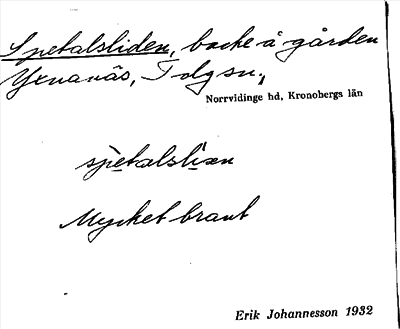 Spetalsliden, backe å gården
Yxnanäs, Tolg sn.,
Norrvidinge hd, Kronobergs län
spetalslian
Mycket brant
Erik Johannesson 1932